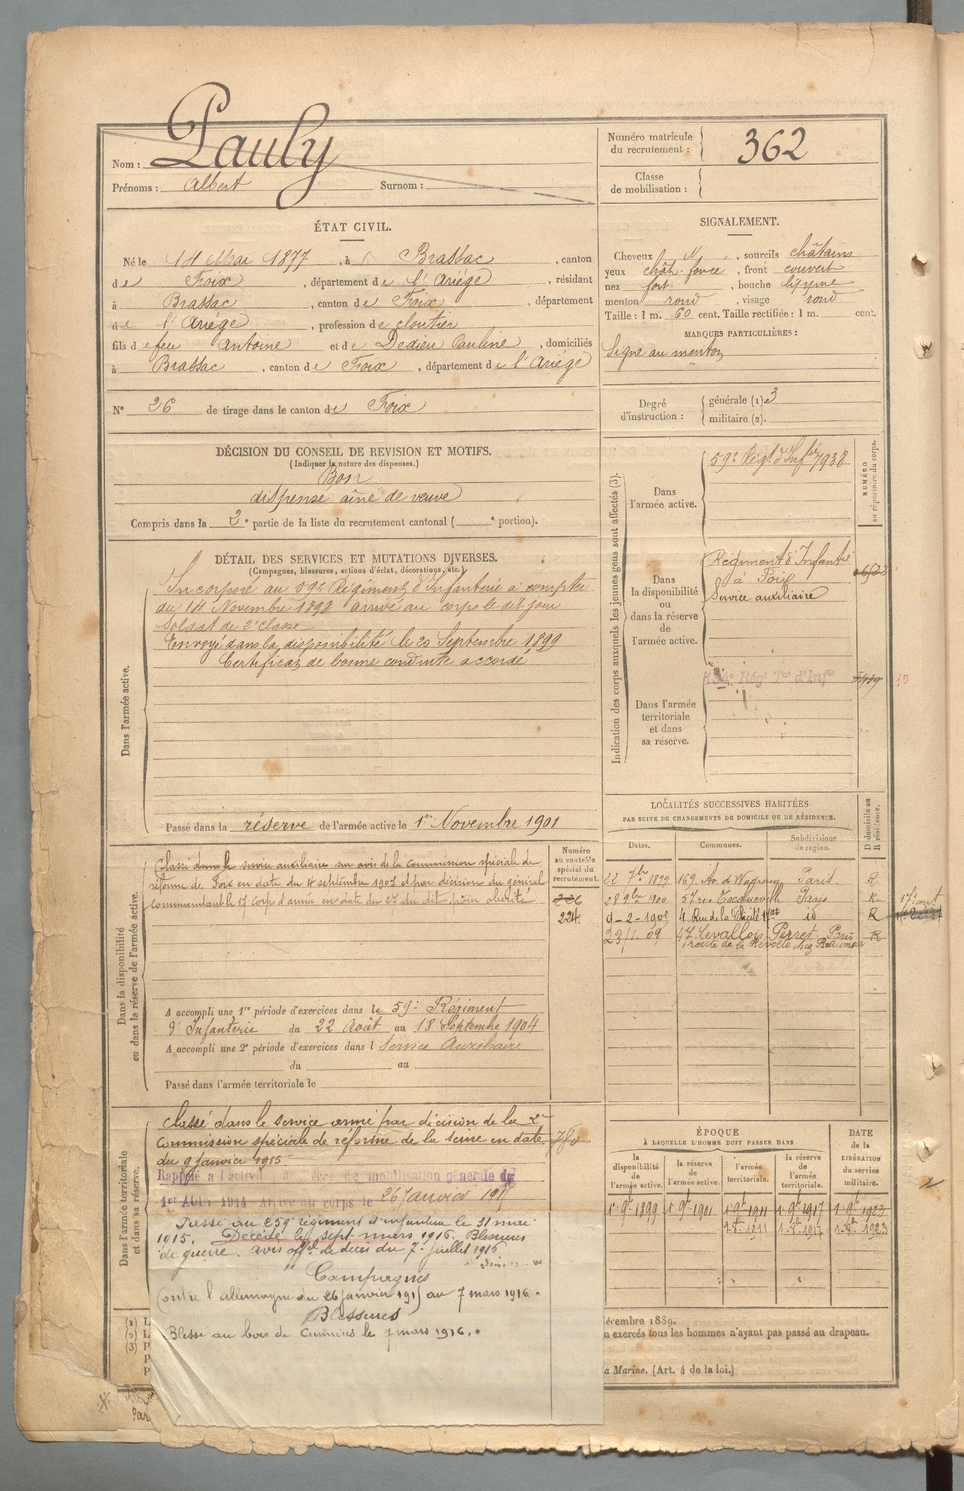 Nom : Pauly
Prénoms : Albert Surnom :
Numéro matricule du recrutement : 362
Classe de mobilisation :
ÉTAT CIVIL.
Né le 14 Mai 1877, à Brassac, canton
de Foix, département de l'Ariège, résidant
à Brassac, canton de Foix, département
de l'Ariège, profession de cloutier
fils de feu Antoine et de Dedieu Pauline, domiciliés
à Brassac, canton de Foix, département de l'Ariège
N° 26 de tirage dans le canton de Foix
SIGNALEMENT.
Cheveux N, sourcils châtains
yeux chât. foncé, front couvert
nez fort, bouche
menton rond, visage rond
Taille : 1 m. 60 cent. Taille rectifiée : 1 m. cent.
MARQUES PARTICULIÈRES :
Signe au menton
Degré d'instruction : générale (1) 3
militaire (2).
DÉCISION DU CONSEIL DE REVISION ET MOTIFS.
(Indiquer la nature des dispenses.)
Bon
dispensé aîné de veuve
Compris dans la 2e partie de la liste du recrutement cantonal ( e portion).
DÉTAIL DES SERVICES ET MUTATIONS DIVERSES.
(Campagnes, blessures, actions d'éclat, décorations, etc.)
Dans l'armée active.
Incorporé au 59e Régiment d'Infanterie à compter
du 14 Novembre 1898 arrivé au corps le dit jour
Soldat de 2e classe
Envoyé dans la disponibilité le 20 Septembre 1899
Certificat de bonne conduite accordé
Passé dans la réserve de l'armée active le 1er Novembre 1901
Indication des corps auxquels les jeunes gens sont affectés (3).
NUMÉRO au répertoire du corps.
Dans l'armée active.
59e Régt d'Infrie 7938
Dans la disponibilité ou dans la réserve de l'armée active.
Régiment d'Infantrie
à Foix
Service auxiliaire
Dans l'armée territoriale et dans sa réserve.
134e Régt Tal d'Infie
LOCALITÉS SUCCESSIVES HABITÉES
PAR SUITE DE CHANGEMENTS DE DOMICILE OU DE RÉSIDENCE.
Dates. Communes. Subdivisions de région. D domicile ou R résidence.
22 7bre 1899 169 Av. de Wagram Paris R
28 9bre 1900 57 rue Tocqueville Paris R
9-2-1908 4 Rue de la id R
23/1 09 47 Levallois Perret Paris R
route de la Révolte chez
Dans la disponibilité ou dans la réserve de l'armée active.
Numéro au contrôle spécial du recrutement.
224
Classé dans le service auxiliaire sur avis de la commission spéciale de
réforme de Foix en date du 4 septembre 1907 et par décision du général
commandant le 17 corps d'armée en date du 27 du dit pour obésité
A accompli une 1re période d'exercices dans le 59e Régiment
d'Infanterie du 22 Août au 18 Septembre 1904
A accompli une 2e période d'exercices dans l Service Auxiliaire
du au
Passé dans l'armée territoriale le
Dans l'armée territoriale et dans sa réserve.
Classé dans le service armé par décision de la 2e
Commission spéciale de réforme de la Seine en date
du 9 janvier 1915
Rappelé à l'activité décret de mobilisation générale du
1er AOUT 1914 Arrivé au corps le 26 janvier 1915
Passé au 259e régiment d'infanterie le 31 mai
1915. Décédé le sept mars 1916. Blessures
de guerre. avis offel de décès du 7 juillet 1916
Campagnes
Contre l'Allemagne du 26 janvier 1915 au 7 mars 1916.
Blessures
Blessé au bois de Cumières le 7 mars 1916.
ÉPOQUE
À LAQUELLE L'HOMME DOIT PASSER DANS
la disponibilité de l'armée active. la réserve de l'armée active. l'armée territoriale. la réserve de l'armée territoriale.
DATE de la LIBÉRATION du service militaire.
1er 9bre 1899 1er 9bre 1901 1er 9bre 1911 1er 9bre 1917 1er 9bre 1923
1911 1917 1923
décembre 1889.
n exercés tous les hommes n'ayant pas passé au drapeau.
la Marine. (Art. 4 de la loi.)